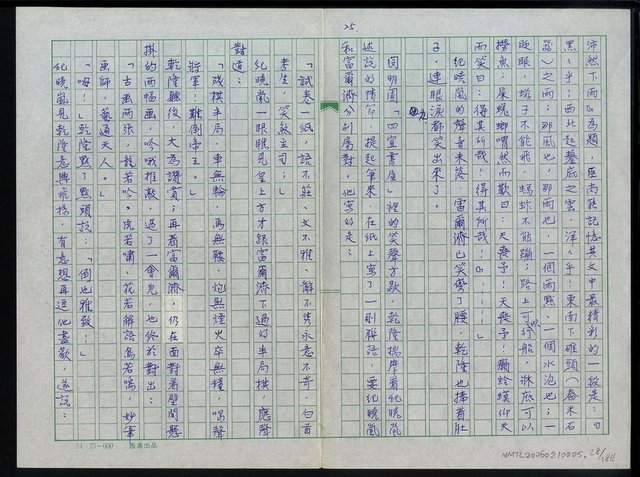 25
沛然下雨』為題，臣尚能記憶其文中最精彩的一段是：『
黑乎！西北起鏊底之雲，渾乎！東南下碓頭（舂米石
器）之雨；那風也，那雨也，一個雨點，一個水泡也；一
時眼，蛤子不能飛，螞蚱不能蹦；路上可行船，牀底可以
撈魚，屎蜣螂喟然而歎曰：天喪予！天喪予，癩蛤蟆仰天
而笑曰：得其所哉！得其所哉！』
紀曉嵐的聲音未落，富爾濟已笑彎了腰，乾隆也捧著肚
子，連眼淚都笑出來了。
圓明園「四宜書屋」裡的笑聲方歇，乾隆揣摩着紀曉嵐
述說的情節，提起筆來，在紙上寫了一則聯語，要紀曉嵐
和富爾濟分別屬對，他寫的是：
「試卷一紙，語不莊、文不雅、解不雋永意不奇，白首
考生，笑煞主司；」
紀曉嵐一眼瞧見皇上方才跟富爾濟下過的半局棋，應聲
對道：
「殘棋半局，車無輪、馬無鞍、炮無煙火卒無糧，喝聲
將軍，難倒帝王。」
乾隆聽後，大為讚賞；再看富爾濟，仍在面對着壁間懸
掛的兩幅畫，吟哦推敲，過了一會兒，也終於對出：
「古畫兩張，龍若吟、虎若嘯、花若解語鳥若鳴，妙筆
畫師，藝通天人。」
「嗯！」乾隆點了點頭說：「倒也雅致！」
紀曉嵐見乾隆意興飛揚，有意想再逗他盡歡，遂說：
24×25=600
NMTL20060210005. 28/184